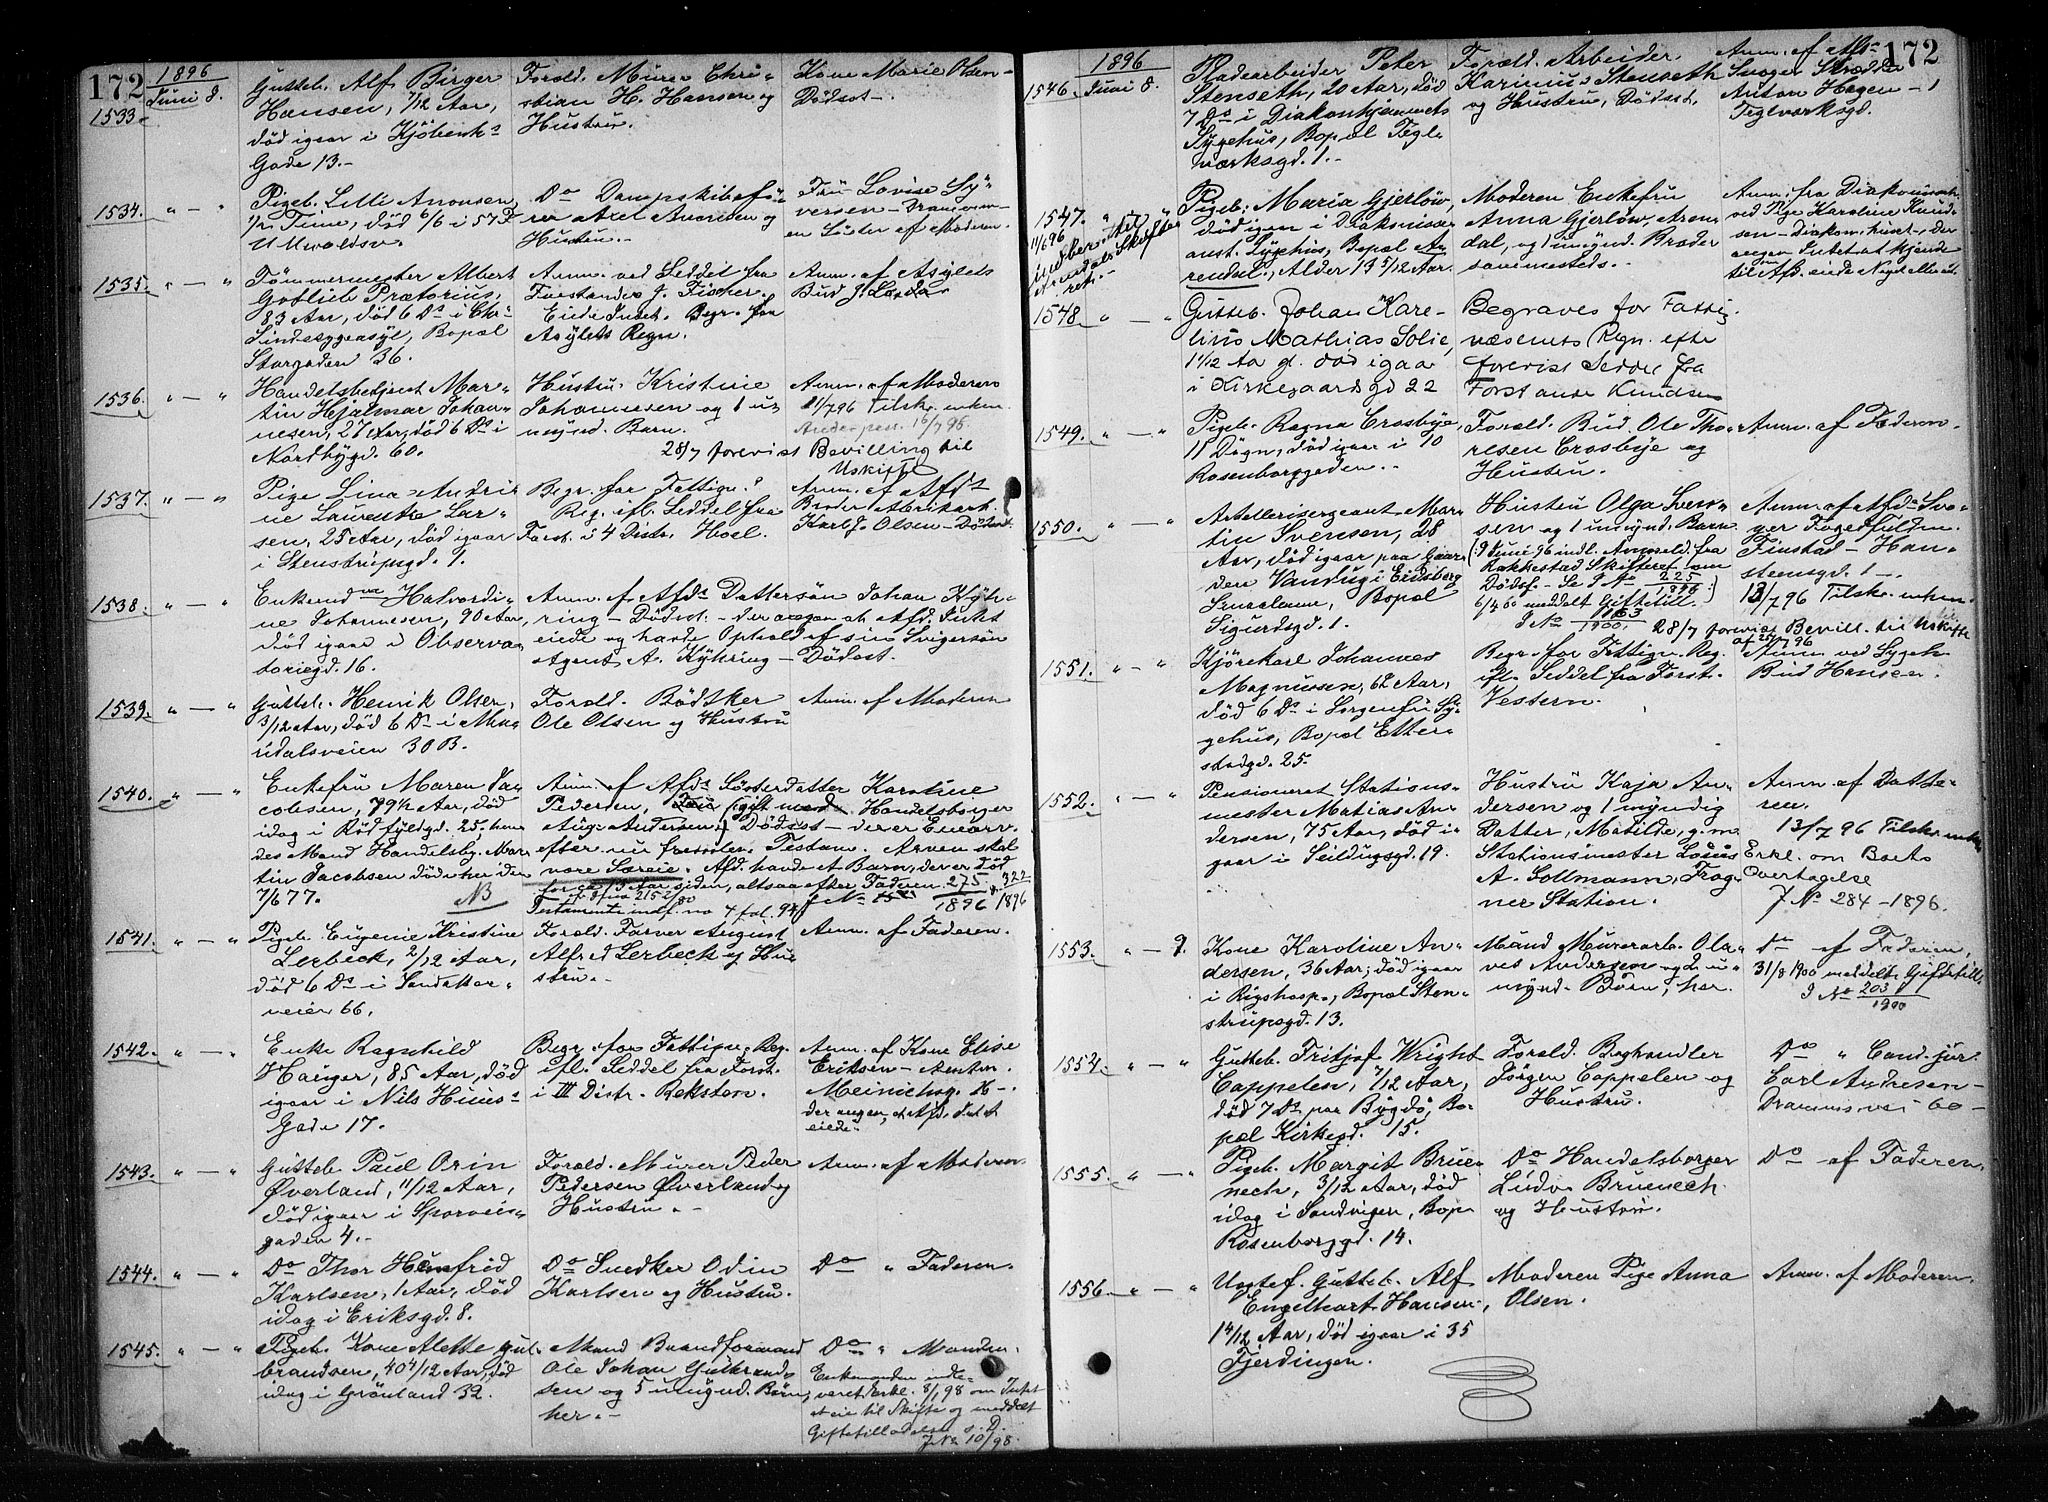 172
1896
Juni 8.
1533.
Gutteb. Alf Birger
Hansen, 7/12 Aar,
död igaar i Kjöbenhs
Gade 13.-
Forold. Murer Chri-
stian H. Hansen og
Hustru.
Kone Marie Olsen-
Dödsat-.
1534. " - "
Pigeb. Lilli Aronsen
1/2 Time, död 6/6 i 57
Ullevoldsv.
Do Dampskibsfö-
rer Axel Aronsen og
Hustru.-
Fru Lovise Sy-
versen - Drammensv-
en Söster af Moderen.
1535. " - "
Tömmermester Albert
Gotlieb Prætorius,
83 Aar, död 6 Ds i Chr.
Sindssygeasyl, Bopæl
Storgaden 36.
Anm. ved Seddel fra
Forstander J. Fischer.
Eiede Intet. Begr. for
Asylets Regn.
Anm. af Asylets
Bud J. Larsen
1536. " - "
Handelsbetjent Mar-
tin Hjalmar Johan-
nesen, 27 Aar, död 6 Ds i
Nordbygd. 60.
Hustru Kristine
Johannesen og 1 u-
mynd. Barn.
Anm. af Moderen
11/7 96 Tilskr. enken
28/7 forevist Bevilling til
Uskifte
1537. " - "
Pige Lina Andri-
ne Laurentze Lar-
sen, 25 Aar, död igaar
i Stenstrupsgd. 1.
Begr. for Fattigv.s
Reg. ifl. Seddel fra
Forst. i 4 Distr. Hoel.
Anm. af Afds
Broder Fabrikarb.
Karl J. Olsen - Dödsat.
1538. " - "
Enkemd va Halvordi-
ne Johannesen, 90 Aar,
död igaar i Observa-
toriegd. 16.
Anm. af Afds Dattersön Johan Kyh-
ring - Dödsat. - der angav at Afd. Intet
eiede og havde Ophold af sin Svigersön
Agent A. Kyhring - Dödsat.
1539. " - "
Gutteb. Henrik Olsen,
3/12 Aar, död 6 Ds i Mari-
dalsveien 30 B.
Forold. Bödtker
Ole Olsen og Hustru
Anm. af Moderen
1540. " - "
Enkefru Maren Ja-
cobsen, 79 1/2 Aar, död
idag i Rödfyldgd. 25; hen-
des Mand Handelsbg. Mar-
tin Jacobsen döde her den
7/6 77.
NB
Anm. af Afds Sösterdatter Karoline
Pedersen, gift med Handelsborger
Aug. Andersen, Dödsat - der er Enearv.
efter nu Testam. Arven skal
være Særeie. Afd. havde et Barn, der er död
for ca 13 Aar siden, altsaa efter Faderen 275 322
1896 1896
1541. " - "
Pigeb. Eugenie Kristine
Lerbeck, 2/12 Aar,
död 6 Ds i Sandaker-
veien 66.
Forold. Farver August
Alfred Lerbeck og Hu-
stru.-
Anm. af Faderen.
1542. " - "
Enke Ragnhild
Hauger, 85 Aar, död
igaar i Nils Huus-
Gade 17.
Begr. for Fattigv. Reg.
ifl. Seddel fra Forst.
i III Distr. Reksten.
Anm. af Kone Elise
Eriksen - Anton
Meinichsg. 16 -.
der angav, at Afd. Intet
eiede.
1543. " - "
Gutteb. Paul Orin
Øverland, 11/12 Aar,
död igaar i Sporveis-
gaden 4.-
Forold. Murer Peder
Pedersen Øverland og
Hustru.-
Anm. af Moderen
1544. " - "
Do Thor Hunfrid
Karlsen, 1 Aar, död
idag i Eriksgd. 8.
Do Snedker Odin
Karlsen og Hustru.
Do " Faderen.
1545. " - "
Kone Alette Gul-
brandsen, 40 4/12 Aar, död
idag i Grönland 32.
Mand Brandformand
Ole Johan Gulbrand-
sen og 5 umynd. Börn,
her.-
Do " Manden.
Enkemanden indle-
veret Erkl. 8/1 98 om Intet
at eie til Skifte og meddelt
Giftetilladelse s. D.
J No 10/98.
172
1896
1546. Juni 8.
Pladearbeider Peter
Stenseth, 20 Aar, död
7 Ds i Diakonhjemmets
Sygehus, Bopæl Tegl-
værksgd. 1.-
Forold. Arbeider
Karinius Stenseth
og Hustru, Dödsat.
Anm. af Afds
Svoger Skrædder
Anton Hagen - 1
Teglværksgd.
1547. " "
11/6 96
Arendals Skifte-
ret.-
Pigeb. Maria Gjerlöw,
död igaar i Diakonisse-
anst. Sygehus, Bopæl A-
rendal, Alder 13 5/12 Aar.
Moderen Enkefru
Anna Gjerlöw, Aren-
dal, og 1 umynd. Broder
sammesteds.-
Anm. fra Diakonissean.
ved Pige Karoline Knud-
sen - Diakon. huset -, der
angav Intet at kjende
til Afd. eiede Noget eller ei.
1548 " - "
Gutteb. Johan Kare-
lius Mathias Solie,
1 1/12 Aar gl. död igaar
i Kirkegaardsgd 22
Begraves for Fattig-
væsenets Regn. efter
forevist Seddel fra
Forstander Knudsen
1549. " - "
Pigeb. Ragna Crosbye,
11 Dögn, död igaar i 10
Rosenborggaden.-
Forold. Bud Ole Tho-
resen Crosbye og
Hustru.
Anm. af Faderen.
1550. " - "
Artillerisergeant Mar-
tin Svensen, 28
Aar, död igaar paa Gaar-
den Vandug i Eidsberg
Smaalenene, Bopæl
Sigurdsgd. 1.
Hustru Olga Sven-
sen og 1 umynd. Barn
(9 Juni 96 indl. Anmeld. fra
Rakkestad Skifteret om
Dödsf. - Se J No 225
1896.)
6/4 00 meddelt Giftetill.
J No 1163
1900.
Anm. af Afds Svo-
ger Fogedfuldm.
Finstad - Han-
steensgd. 1 -.
13/7 96 Tilskr. enken
28/7 forevist Bevill. til Uskifte
af 25/7 96
1551. " - "
Kjörekarl Johannes
Magnussen, 62 Aar,
död 6 Ds i Sorgenfri Sy-
gehus, Bopæl Etter-
stadgd. 25.
Begr. for Fattigv. Reg.
ifl. Seddel fra Forst.
Vestern.
Anm. ved Sygeh.
Bud Hansen.
1552. " - "
Pensioneret Stations-
mester Matias An-
dersen, 75 Aar, död i-
gaar i Seildugsgd. 19.
Hustru Kaja An-
dersen og 1 myndig
Datter, Matilde, g. m.
Stationsmester Louis
A. Sollmann, Trog-
ner Station.
Anm. af Datte-
ren.
13/7 96 Tilskr. enken
Erkl. om Boets
Overtagelse
J No 284 - 1896.
1553. " - 9.
Kone Karoline An-
dersen, 36 Aar, död igaar
i Rigshosp., Bopæl Sten-
strupsgd. 13.
Mand Murerarb. Ola-
ves Andersen og 2 u-
mynd. Börn, her.
Do af Faderen,
31/8 1900 meddelt Giftetill.
J No 203
1900
1554. " - "
Gutteb. Fritjof Wright
Cappelen, 7/12 Aar,
död 7 Ds paa Bygdö, Bo-
pæl Kirkegd. 15.
Forold. Boghandler
Jörgen Cappelen og
Hustru.
Do " Cand. jur.
Carl Andresen -
Drammensvei 60 -
1555. " - "
Pigeb. Margit Brue-
nech, 3/12 Aar, död
idag i Sandvigen, Bop.
Rosenborggd. 14.
Do Handelsborger
Ludv. Bruenech
og Hustru.
Do af Faderen.
1556. " - "
Uægtef. Gutteb. Alf
Engelhart Hansen,
1 4/12 Aar, död igaar i 35
Fjerdingen.
Moderen Pige Anna
Olsen.
Anm. af Moderen.